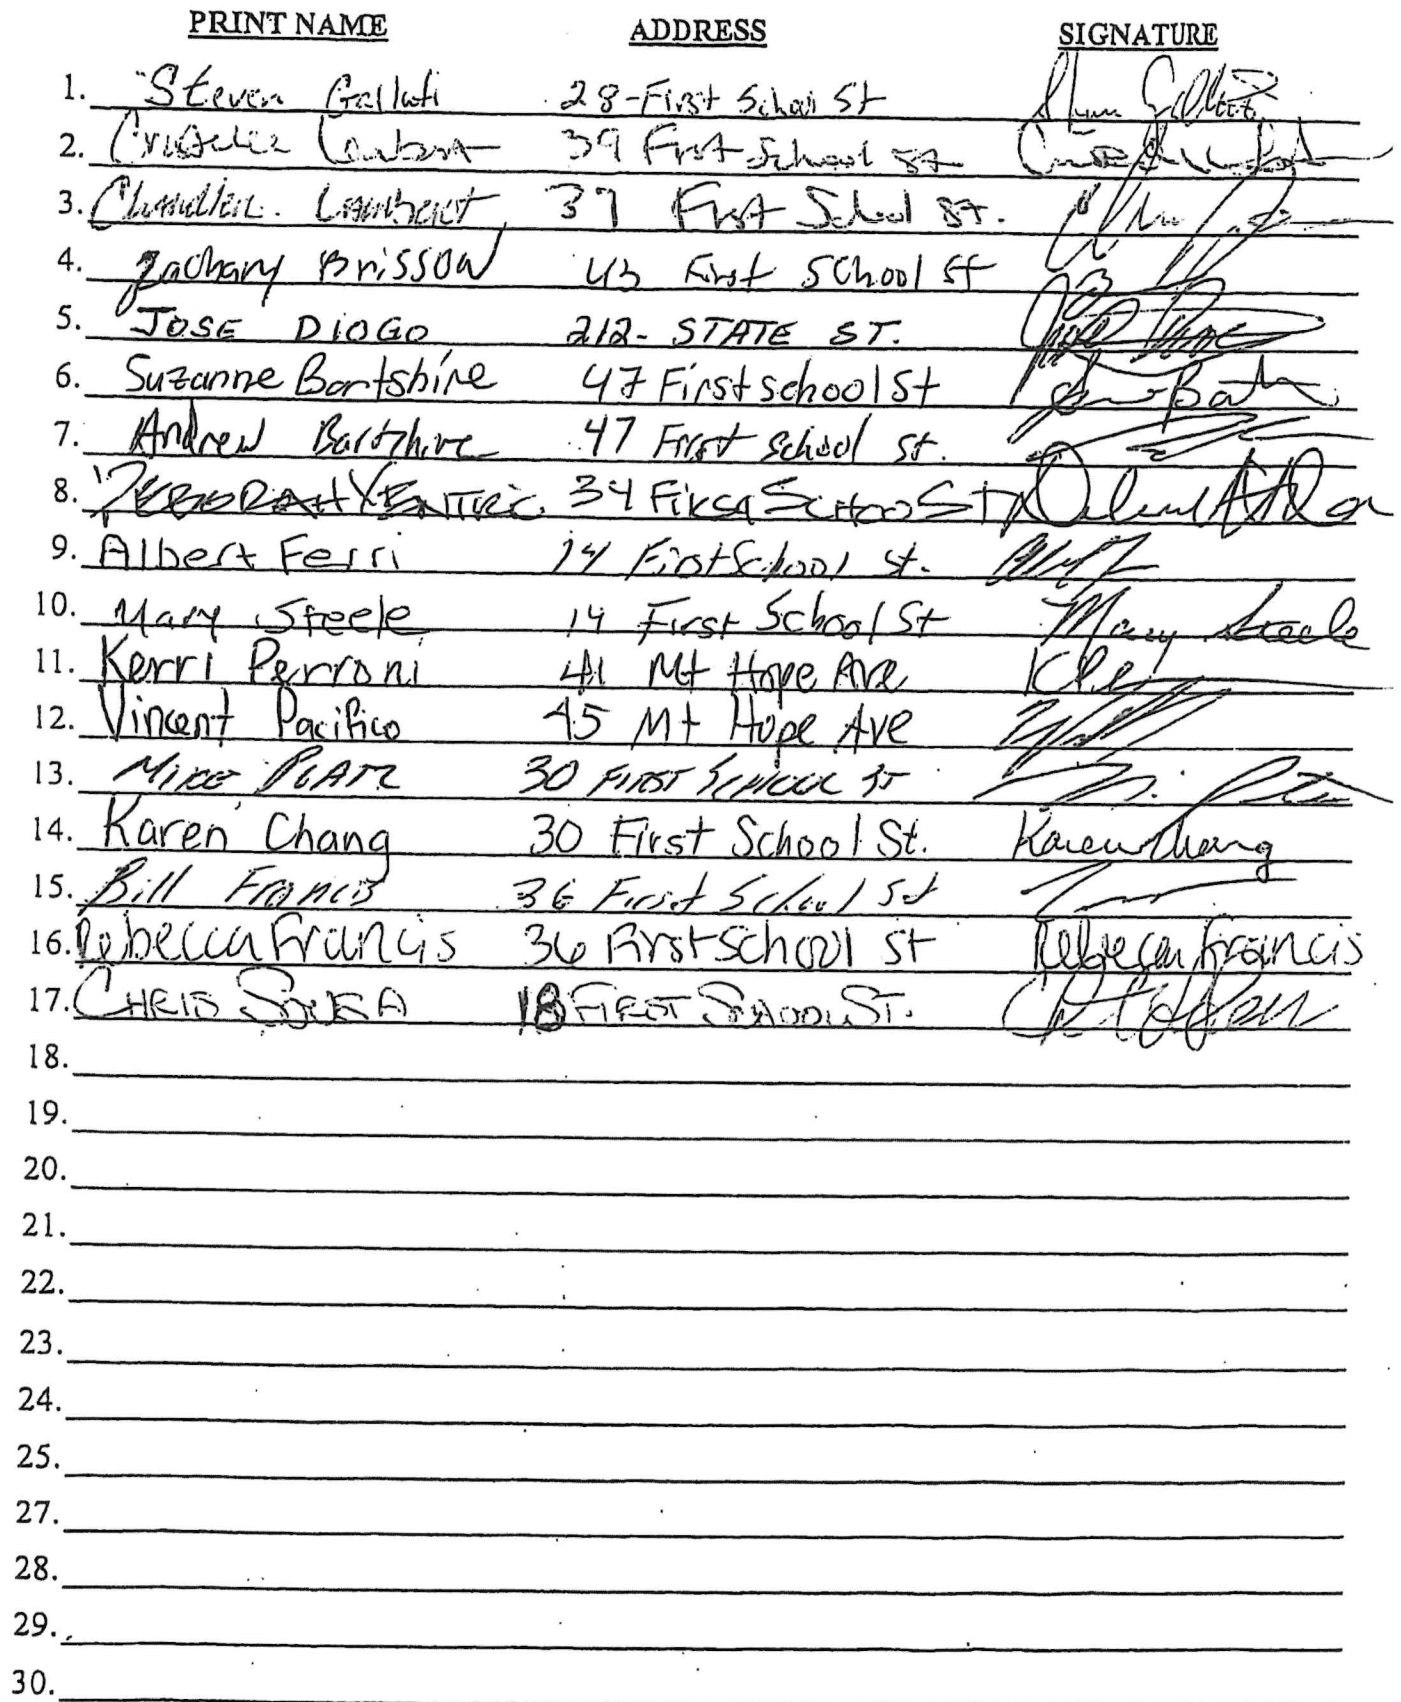 PRINT NAME ADDRESS SIGNATURE
1. Steven Gallati 28-First School St
2. Lambert 39 First School St
3. Lambert 39 First School St.
4. Zachary Brisson 43 First School St
5. JOSE DIOGO 212- STATE ST.
6. Suzanne Bartshire 47 First school St
7. Andrew Bartshire 47 First School St.
8. DEBORAH 34
9. Albert Ferri 14 First School St.
10. Mary Steele 14 First School St Mary Steele
11. Kerri Perroni 41 Mt Hope Ave
12. Vincent Pacifico 45 Mt Hope Ave
13. MIKE 30 FIRST SCHOOL ST
14. Karen Chang 30 First School St. Karen Chang
15. Bill Francis 36 First School St
16. Rebecca Francis 36 First School St Rebecca Francis
17. CHRIS SOUSA 18 FIRST SCHOOL ST.
18.
19.
20.
21.
22.
23.
24.
25.
27.
28.
29.
30.